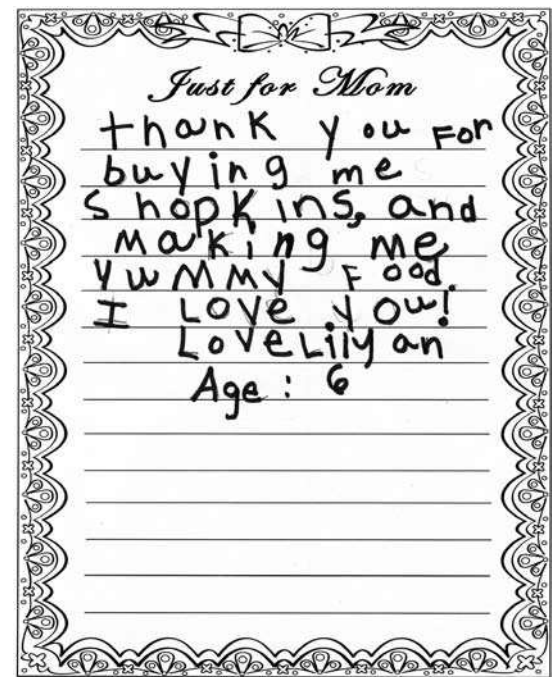 Just for Mom
thank you For
buying me
Shopkins, and
making me
yummy Food.
I Love you!
Love Lilyan
Age: 6